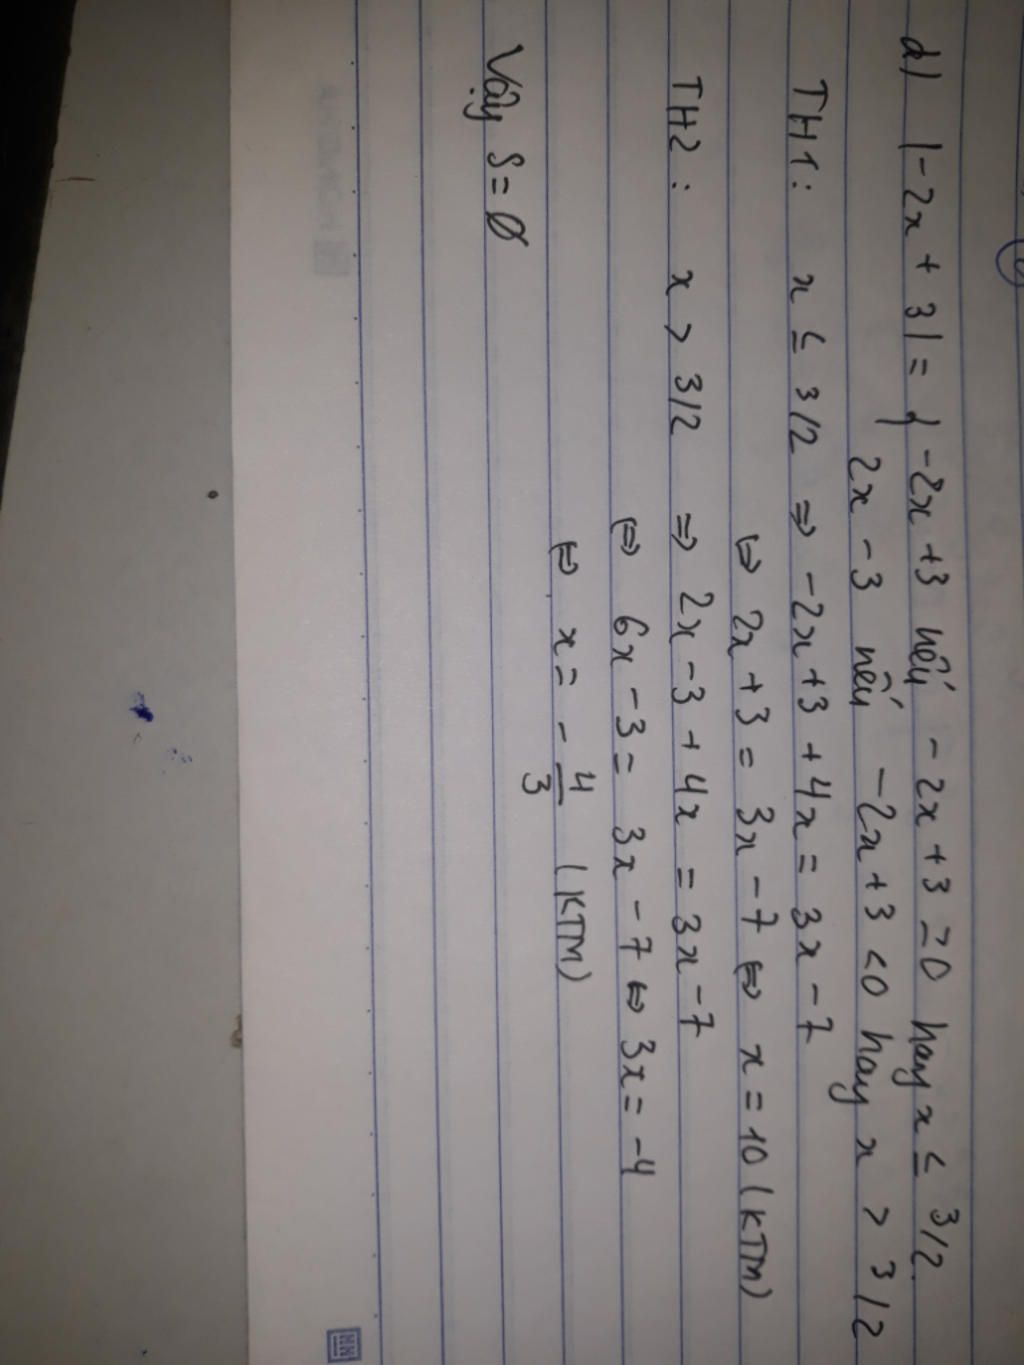 d) |-2x + 3| = { -2x +3 nếu -2x +3 ≥0 hay x ≤ 3/2
2x - 3 nếu -2x +3 <0 hay x > 3/2
TH1: x ≤ 3/2 ⇒ -2x +3 +4x = 3x -7
⇔ 2x +3 = 3x -7 ⇔ x = 10 (KTM)
TH2: x > 3/2 ⇒ 2x -3 + 4x = 3x -7
⇔ 6x -3 = 3x -7 ⇔ 3x = -4
⇔ x = -4/3 (KTM)
Vậy S = ∅